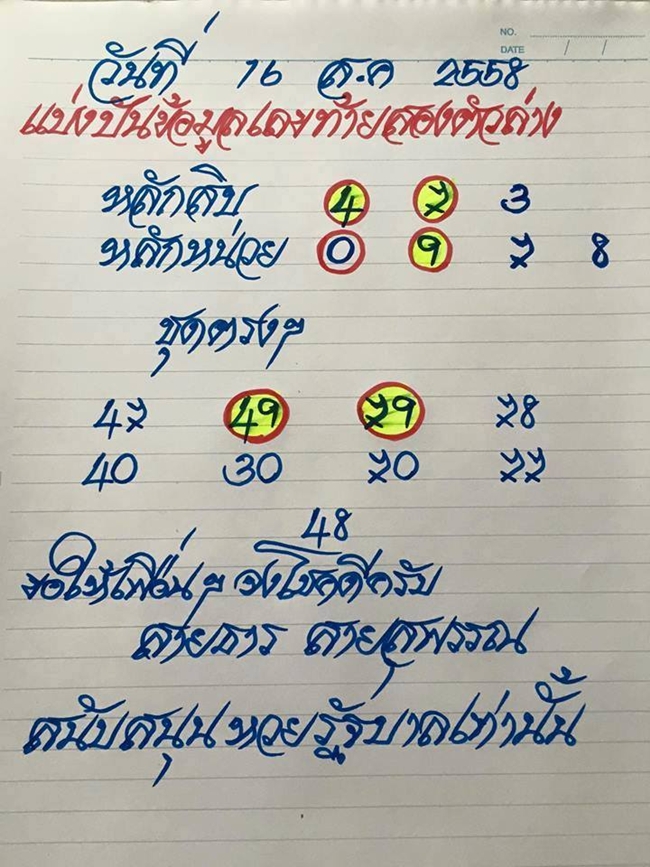 NO.
DATE / /
วันที่ 16 ต.ค 2558
แบ่งปันข้อมูลเลขท้ายสองตัวล่าง
หลักสิบ 4 7 3
หลักหน่วย 0 9 7 8
ชุดตรงๆ
47 49 79 78
40 30 70 77
48
ขอให้เพื่อนๆ จงโชคดีครับ
สายธาร สายสุพรรณ
สนับสนุนหวยรัฐบาลเท่านั้น